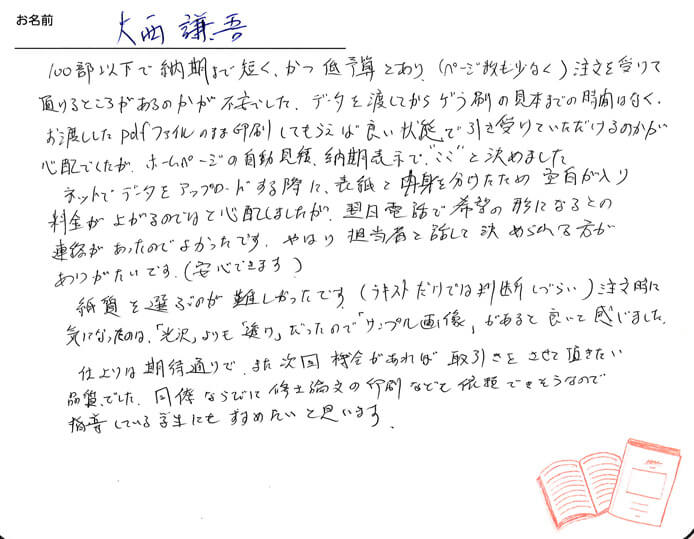 お名前 大西 謙吾
100部以下で納期まで短く、かつ低予算とあり、(ページ数も少なく)注文を受けて
頂けるところがあるのかが不安でした。データを渡してからゲラ刷の見本までの時間はなく、
お渡ししたpdfファイルのまま印刷してもらえば良い状態で引き受けていただけるのかが
心配でしたが、ホームページの自動見積、納期表示で、"ここ"と決めました
ネットでデータをアップロードする際に、表紙と中身を分けたため空白が入り
料金が上がるのではと心配しましたが、翌日電話で希望の形になるとの
連絡があったのでよかったです。やはり担当者と話して決められる方が
ありがたいです。(安心できます)
紙質を選ぶのが難しかったです。(テキストだけでは判断しづらい)注文時に
気になったのは、「光沢」よりも「透け」だったので「サンプル画像」があると良いと感じました。
仕上りは期待通りで、また次回機会があれば取引きをさせて頂きたい
品質でした。同様ならびに修士論文の印刷なども依頼できそうなので
指導している学生にもすすめたいと思います。